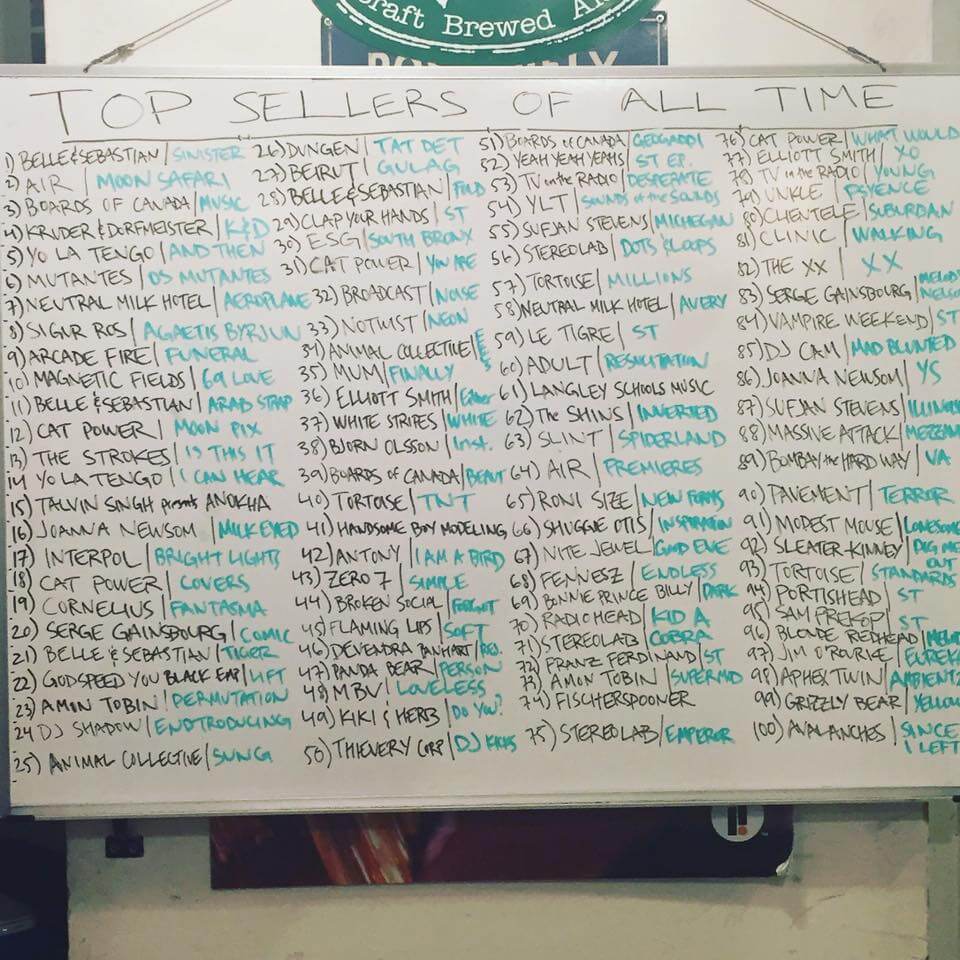 Craft Brewed
TOP SELLERS OF ALL TIME
1) BELLE & SEBASTIAN / SINISTER
2) AIR / MOON SAFARI
3) BOARDS OF CANADA / MUSIC
4) KRUDER & DORFMEISTER / K&D
5) YO LA TENGO / AND THEN
6) MUTANTES / OS MUTANTES
7) NEUTRAL MILK HOTEL / AEROPLANE
8) SIGUR ROS / AGAETIS BYRJUN
9) ARCADE FIRE / FUNERAL
10) MAGNETIC FIELDS / 69 LOVE
11) BELLE & SEBASTIAN / ARAB STRAP
12) CAT POWER / MOON PIX
13) THE STROKES / IS THIS IT
14 YO LA TENGO / I CAN HEAR
15) TALVIN SINGH presents ANOKHA
16) JOANNA NEWSOM / MILK EYED
17) INTERPOL / BRIGHT LIGHTS
18) CAT POWER / COVERS
19) CORNELIUS / FANTASMA
20) SERGE GAINSBOURG / COMIC
21) BELLE & SEBASTIAN / TIGER
22) GODSPEED YOU BLACK EMP / LIFT
23) AMON TOBIN / PERMUTATION
24 DJ SHADOW / ENDTRODUCING
25) ANIMAL COLLECTIVE / SUNG
26) DUNGEN / TAT DET
27) BEIRUT / GULAG
28) BELLE & SEBASTIAN / FOLD
29) CLAP YOUR HANDS / ST
30) ESG / SOUTH BRONX
31) CAT POWER / YOU ARE
32) BROADCAST / NOISE
33) NOTWIST / NEON
34) ANIMAL COLLECTIVE /
35) MUM / FINALLY
36) ELLIOTT SMITH / Either
37) WHITE STRIPES / WHITE
38) BJORN OLSSON / Inst.
39) BOARDS OF CANADA / BEAUT
40) TORTOISE / TNT
41) HANDSOME BOY MODELING
42) ANTONY / I AM A BIRD
43) ZERO 7 / SIMPLE
44) BROKEN SOCIAL / FORGOT
45) FLAMING LIPS / SOFT
46) DEVENDRA BANHART / REJ.
47) PANDA BEAR / PERSON
48) MBV / LOVELESS
49) KIKI & HERB / DO YOU?
50) THIEVERY CORP / DJ KICKS
51) BOARDS OF CANADA / GEOGADDI
52) YEAH YEAH YEAHS / ST EP.
53) TV on the RADIO / DESPERATE
54) YLT / SOUNDS of the SOUNDS
55) SUFJAN STEVENS / MICHEGAN
56) STEREOLAB / DOTS & LOOPS
57) TORTOISE / MILLIONS
58) NEUTRAL MILK HOTEL / AVERY
59) LE TIGRE / ST
60) ADULT / RESUSCITATION
61) LANGLEY SCHOOLS MUSIC
62) The SHINS / INVERTED
63) SLINT / SPIDERLAND
64) AIR / PREMIERES
65) RONI SIZE / NEW FORMS
66) SHUGGIE OTIS / INSPIRATION
67) NITE JEWEL / GOOD EVE
68) FENNESZ / ENDLESS
69) BONNIE PRINCE BILLY / DARK
70) RADIOHEAD / KID A
71) STEREOLAB / COBRA
72) FRANZ FERDINAND / ST
73) AMON TOBIN / SUPERMOD
74) FISCHERSPOONER
75) STEREOLAB / EMPEROR
76) CAT POWER / WHAT WOULD
77) ELLIOTT SMITH / XO
78) TV on the RADIO / YOUNG
79) UNKLE / PSYENCE
80) CLIENTELE / SUBURBAN
81) CLINIC / WALKING
82) THE XX / XX
83) SERGE GAINSBOURG / MELODY NELSON
84) VAMPIRE WEEKEND / ST
85) DJ CAM / MAD BLUNTED
86) JOANNA NEWSOM / YS
87) SUFJAN STEVENS / ILLINOIS
88) MASSIVE ATTACK / MEZZAN
89) BOMBAY the HARD WAY / VA
90) PAVEMENT / TERROR
91) MODEST MOUSE / LONESOME
92) SLEATER-KINNEY / DIG ME OUT
93) TORTOISE / STANDARDS
94) PORTISHEAD / ST
95) SAM PREKOP / ST
96) BLONDE REDHEAD / MELOD
97) JIM O'ROURKE / EUREKA
98) APHEX TWIN / AMBIENT
99) GRIZZLY BEAR / YELLOW
100) AVALANCHES / SINCE I LEFT